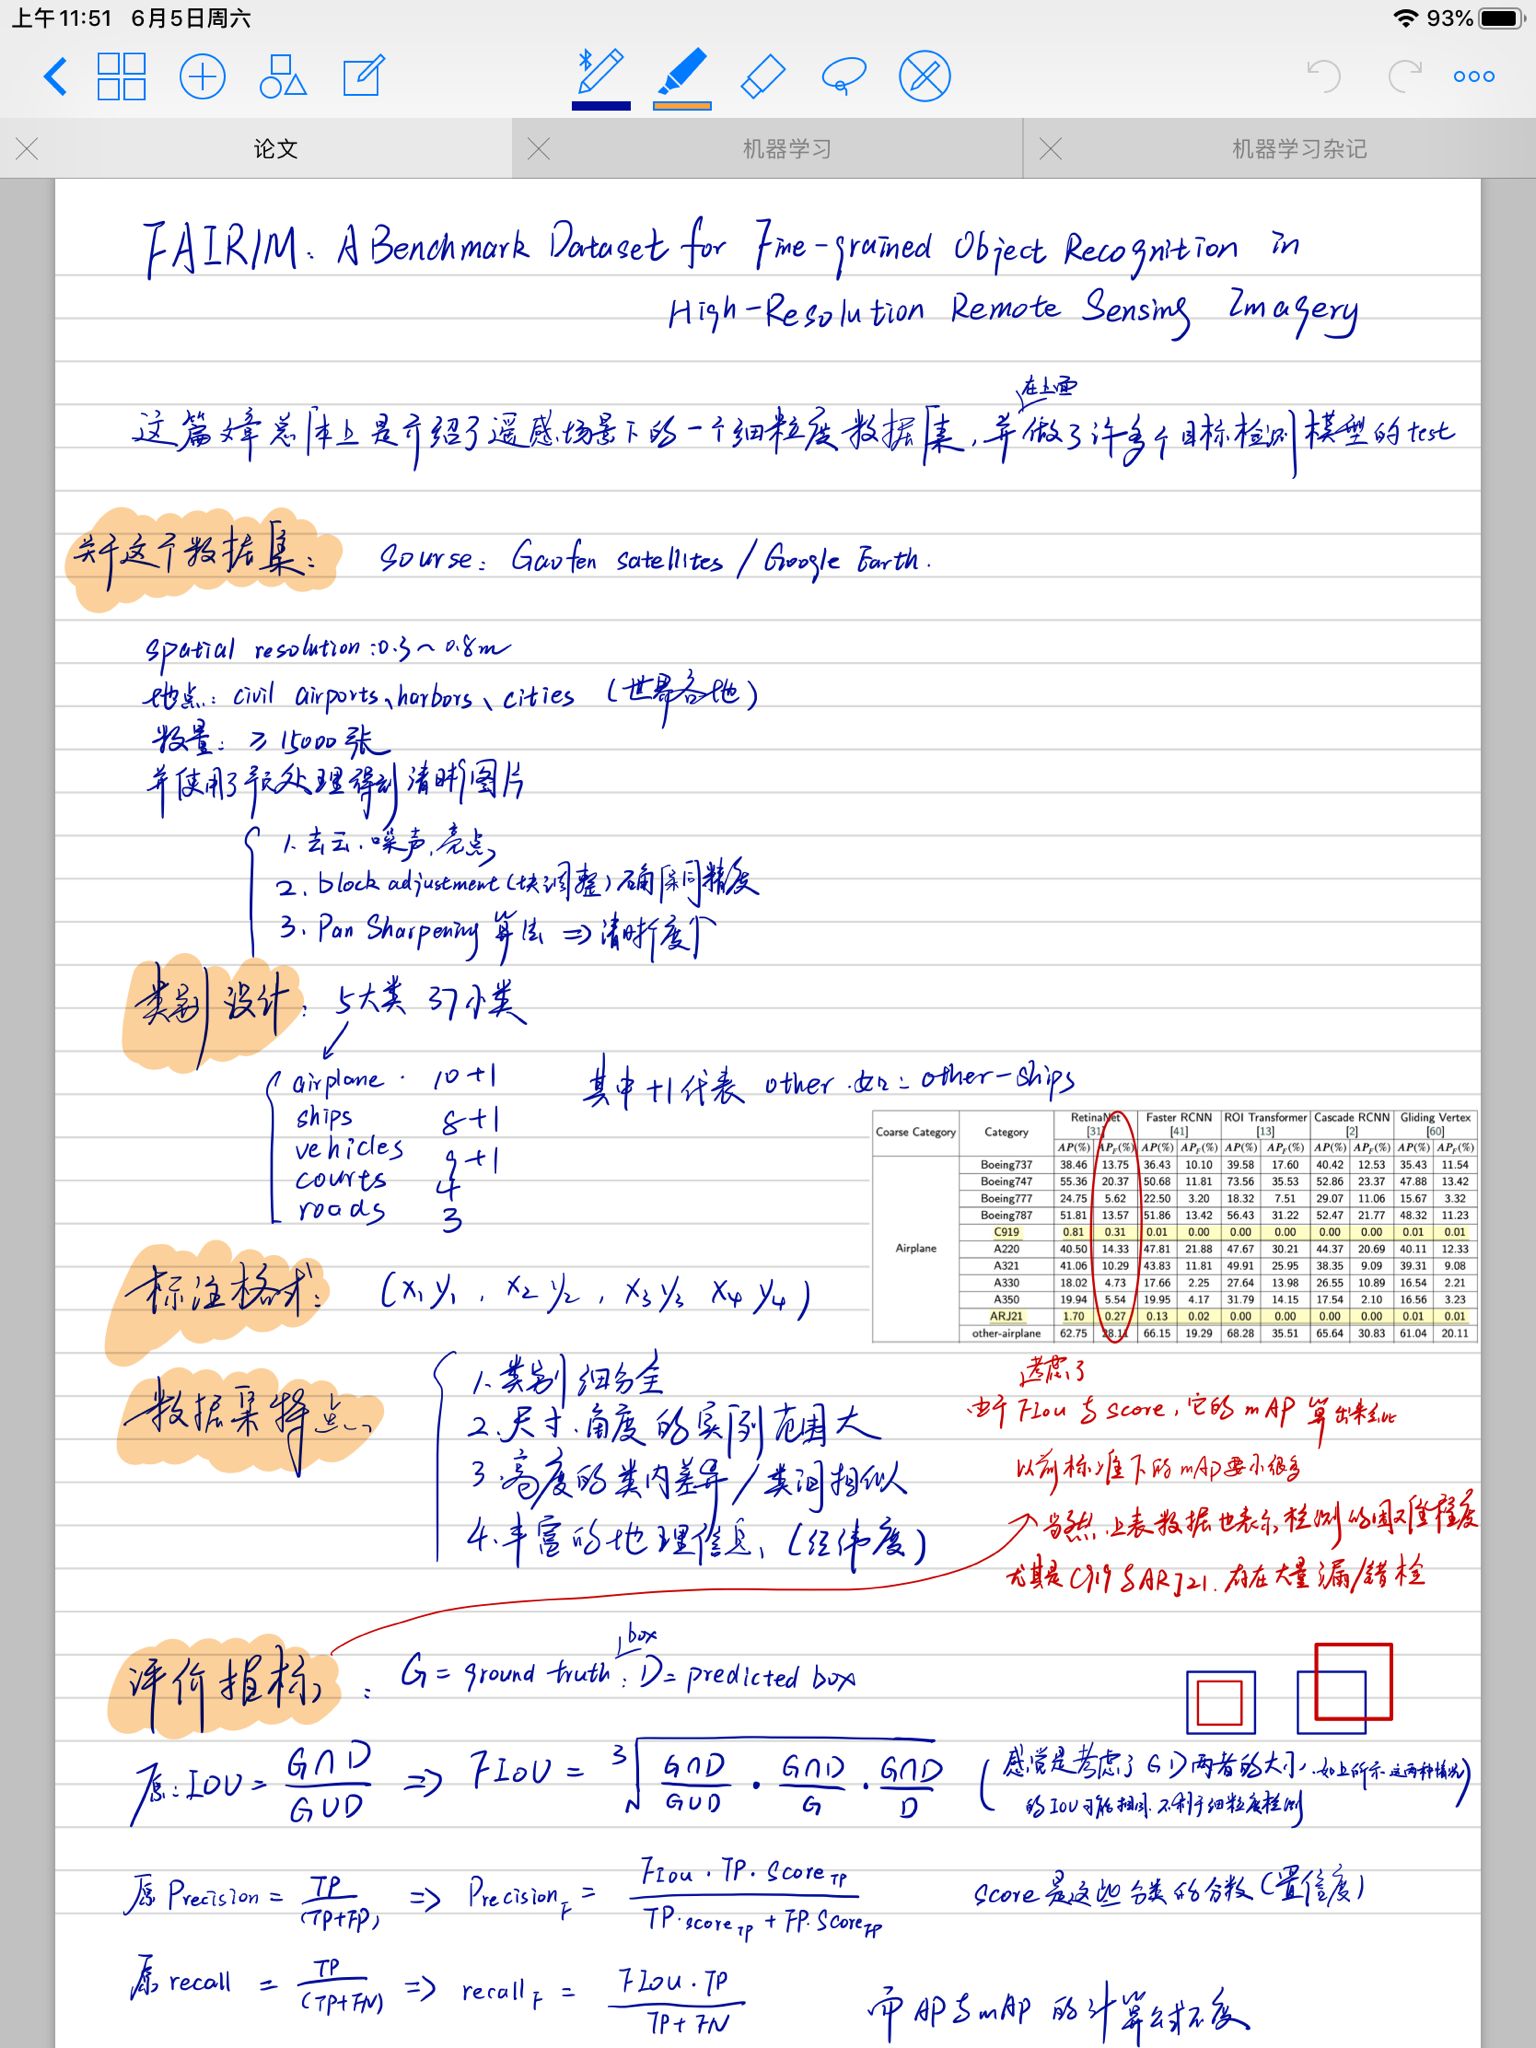 上午11:51 6月5日周六 93%
论文 机器学习 机器学习杂记
FAIR1M: A Benchmark Dataset for Fine-grained Object Recognition in
High-Resolution Remote Sensing Imagery
在上面
这篇文章总体上是介绍了遥感场景下的一个细粒度数据集，并做了许多个目标检测模型的test
关于这个数据集: Sourse: Gaofen satellites / Google Earth.
spatial resolution: 0.3~0.8m
地点: civil airports、harbors、cities (世界各地)
数量: ≥15000张
并使用了预处理得到清晰图片
1. 去云.噪声.亮点
2. block adjustment (块调整) 确保同精度
3. Pan Sharpening 算法 => 清晰度↑
类别设计: 5大类 37小类
airplane. 10+1 其中+1代表 other.如: other-ships
ships 8+1
vehicles 9+1
courts 4
roads 3
Coarse Category Category RetinaNet [31] Faster RCNN [41] ROI Transformer [13] Cascade RCNN [2] Gliding Vertex [60]
AP(%) AP_F(%) AP(%) AP_F(%) AP(%) AP_F(%) AP(%) AP_F(%) AP(%) AP_F(%)
Airplane
Boeing737 38.46 13.75 36.43 10.10 39.58 17.60 40.42 12.53 35.43 11.54
Boeing747 55.36 20.37 50.68 11.81 73.56 35.53 52.86 23.37 47.88 13.42
Boeing777 24.75 5.62 22.50 3.20 18.32 7.51 29.07 11.06 15.67 3.32
Boeing787 51.81 13.57 51.86 13.42 56.43 31.22 52.47 21.77 48.32 11.23
C919 0.81 0.31 0.01 0.00 0.00 0.00 0.00 0.00 0.01 0.01
A220 40.50 14.33 47.81 21.88 47.67 30.21 44.37 20.69 40.11 12.33
A321 41.06 10.29 43.83 11.81 49.91 25.95 38.35 9.09 39.31 9.08
A330 18.02 4.73 17.66 2.25 27.64 13.98 26.55 10.89 16.54 2.21
A350 19.94 5.54 19.95 4.17 31.79 14.15 17.54 2.10 16.56 3.23
ARJ21 1.70 0.27 0.13 0.02 0.00 0.00 0.00 0.00 0.01 0.01
other-airplane 62.75 28.11 66.15 19.29 68.28 35.51 65.64 30.83 61.04 20.11
标注格式: (x₁y₁, x₂y₂, x₃y₃ x₄y₄)
数据集特点:
1. 类别细分全
2. 尺寸.角度的实例范围大
3. 高度的类内差异/类间相似
4. 丰富的地理信息、(经纬度)
考虑了
由于FIou与score,它的mAP算出来会比
以前标准下的mAP要小很多
当然,上表数据也表示检测的困难程度
尤其是C919与ARJ21.存在大量漏/错检
box
评价指标: G = ground truth: D = predicted box
原: IOU = G∩D / G∪D => FIOU = ∛(G∩D / G∪D · G∩D / G · G∩D / D) (感觉是考虑了G D两者的大小.如上所示.这两种情况
的IOU可能相同.不利于细粒度检测)
原 Precision = TP / (TP+FP) => Precision_F = FIou·TP·Score_TP / TP·score_TP + FP·Score_FP score是这些分类的分数(置信度)
原 recall = TP / (TP+FN) => recall_F = FIou·TP / TP+FN 而AP与mAP的计算公式不变